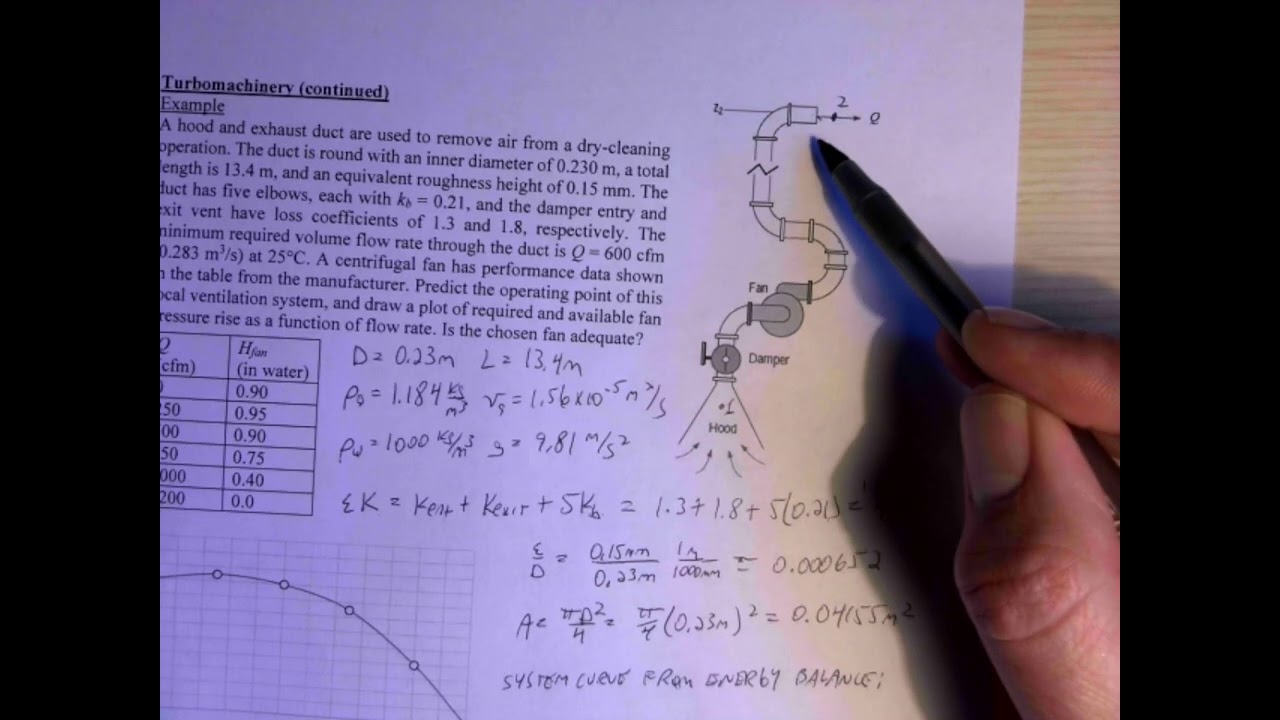 Turbomachinery (continued)
Example
A hood and exhaust duct are used to remove air from a dry-cleaning
operation. The duct is round with an inner diameter of 0.230 m, a total
ength is 13.4 m, and an equivalent roughness height of 0.15 mm. The
duct has five elbows, each with kb = 0.21, and the damper entry and
exit vent have loss coefficients of 1.3 and 1.8, respectively. The
minimum required volume flow rate through the duct is Q = 600 cfm
0.283 m³/s) at 25°C. A centrifugal fan has performance data shown
n the table from the manufacturer. Predict the operating point of this
ocal ventilation system, and draw a plot of required and available fan
ressure rise as a function of flow rate. Is the chosen fan adequate?
Q Hfan
cfm) (in water)
0.90
50 0.95
00 0.90
50 0.75
000 0.40
200 0.0
D = 0.23m L = 13.4m
ρg = 1.184 kg/m³ νg = 1.56×10⁻⁵ m²/s
ρw = 1000 kg/m³ g = 9.81 m/s²
ΣK = Kent + Kexit + 5Kb = 1.3 + 1.8 + 5(0.21) =
ε/D = 0.15mm/0.23m 1m/1000mm = 0.000652
A = πD²/4 = π/4 (0.23m)² = 0.04155m²
SYSTEM CURVE FROM ENERGY BALANCE:
z2
2
Q
Fan
Damper
1
Hood